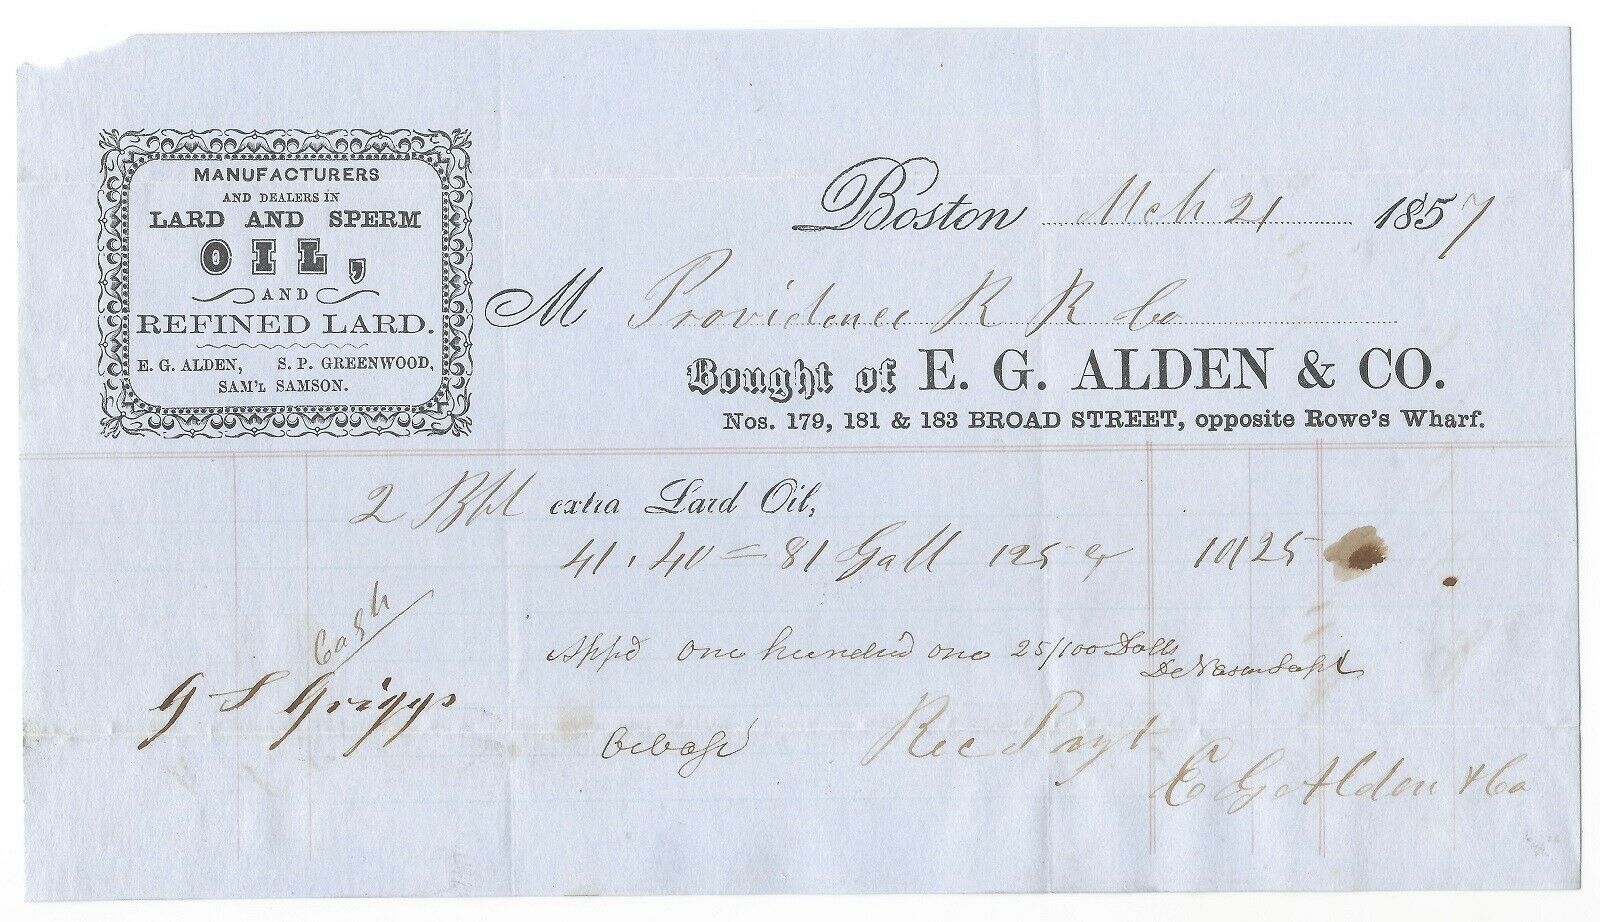 MANUFACTURERS
AND DEALERS IN
LARD AND SPERM
OIL,
AND
REFINED LARD.
E. G. ALDEN, S. P. GREENWOOD,
SAM'L SAMSON.
Boston Mch 21 1857
M Providence R R Co
Bought of E. G. ALDEN & CO.
Nos. 179, 181 & 183 BROAD STREET, opposite Rowe's Wharf.
2 Bbl extra Lard Oil,
41, 40 = 81 Gall 125 101 25
Cash
App'd One hundred one 25/100 Dolls
G S Griggs
Rec Payt
E G Alden & Co